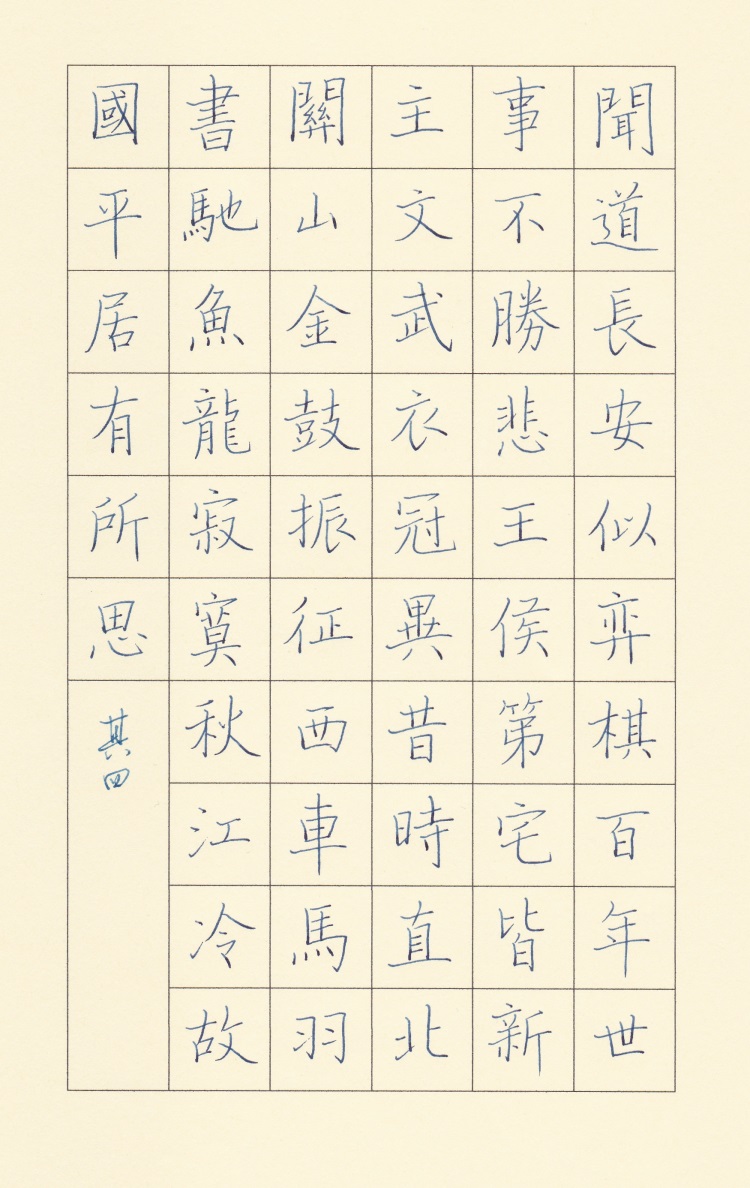 聞道長安似弈棋百年世
事不勝悲王侯第宅皆新
主文武衣冠異昔時直北
關山金鼓振征西車馬羽
書馳魚龍寂寞秋江冷故
國平居有所思
其四